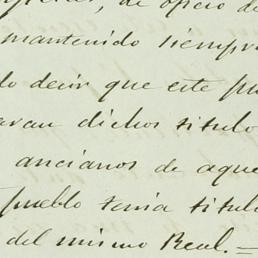 de oficio de
mantenido siempre
decir que este pu
aran dichos titulo
ancianos de aque
pueblo tenia titulo
del mismo Real.=